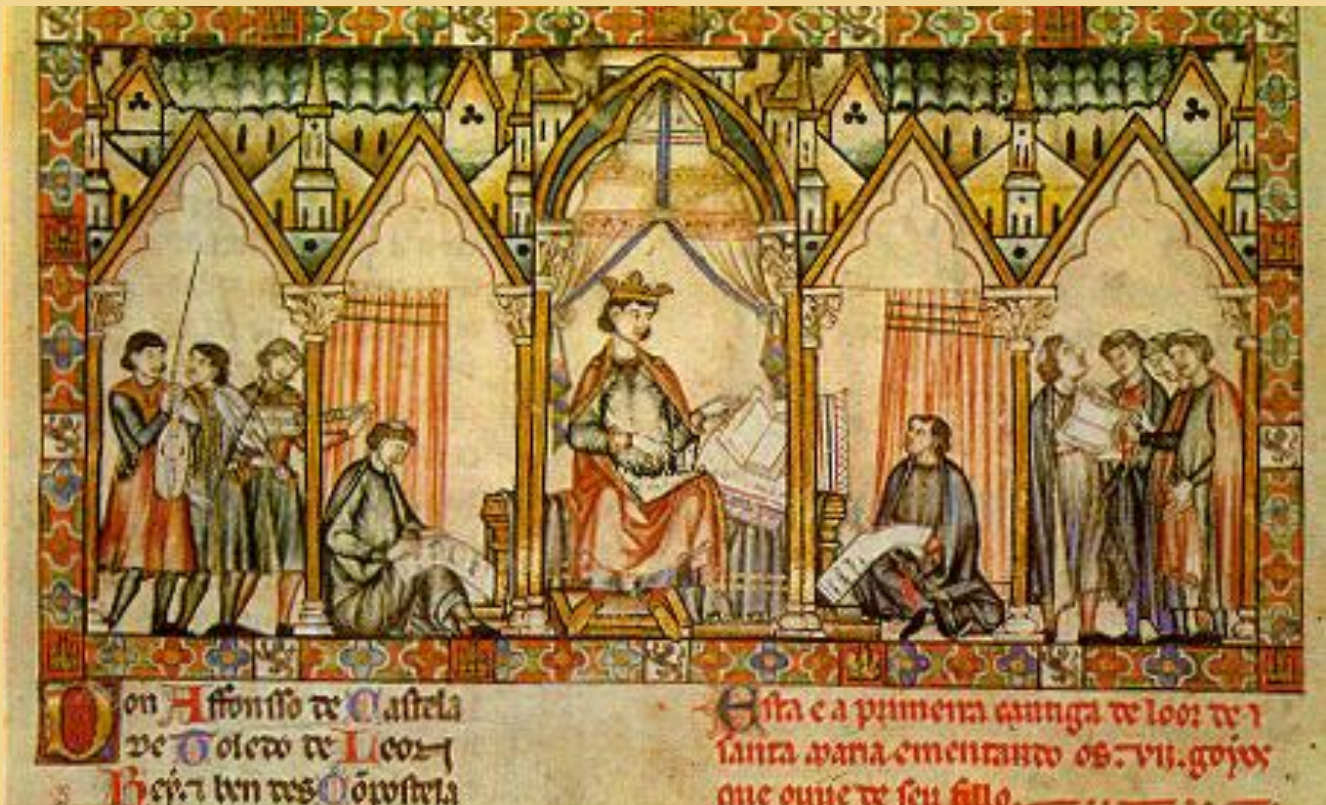 Don Affonsso de Castela
de Toledo de Leon
Rey ⁊ ben des Cōpostela
Esta e a primeira cantiga de loor de
santa maria ementando os .vii. goyos
que ouve de seu fillo.